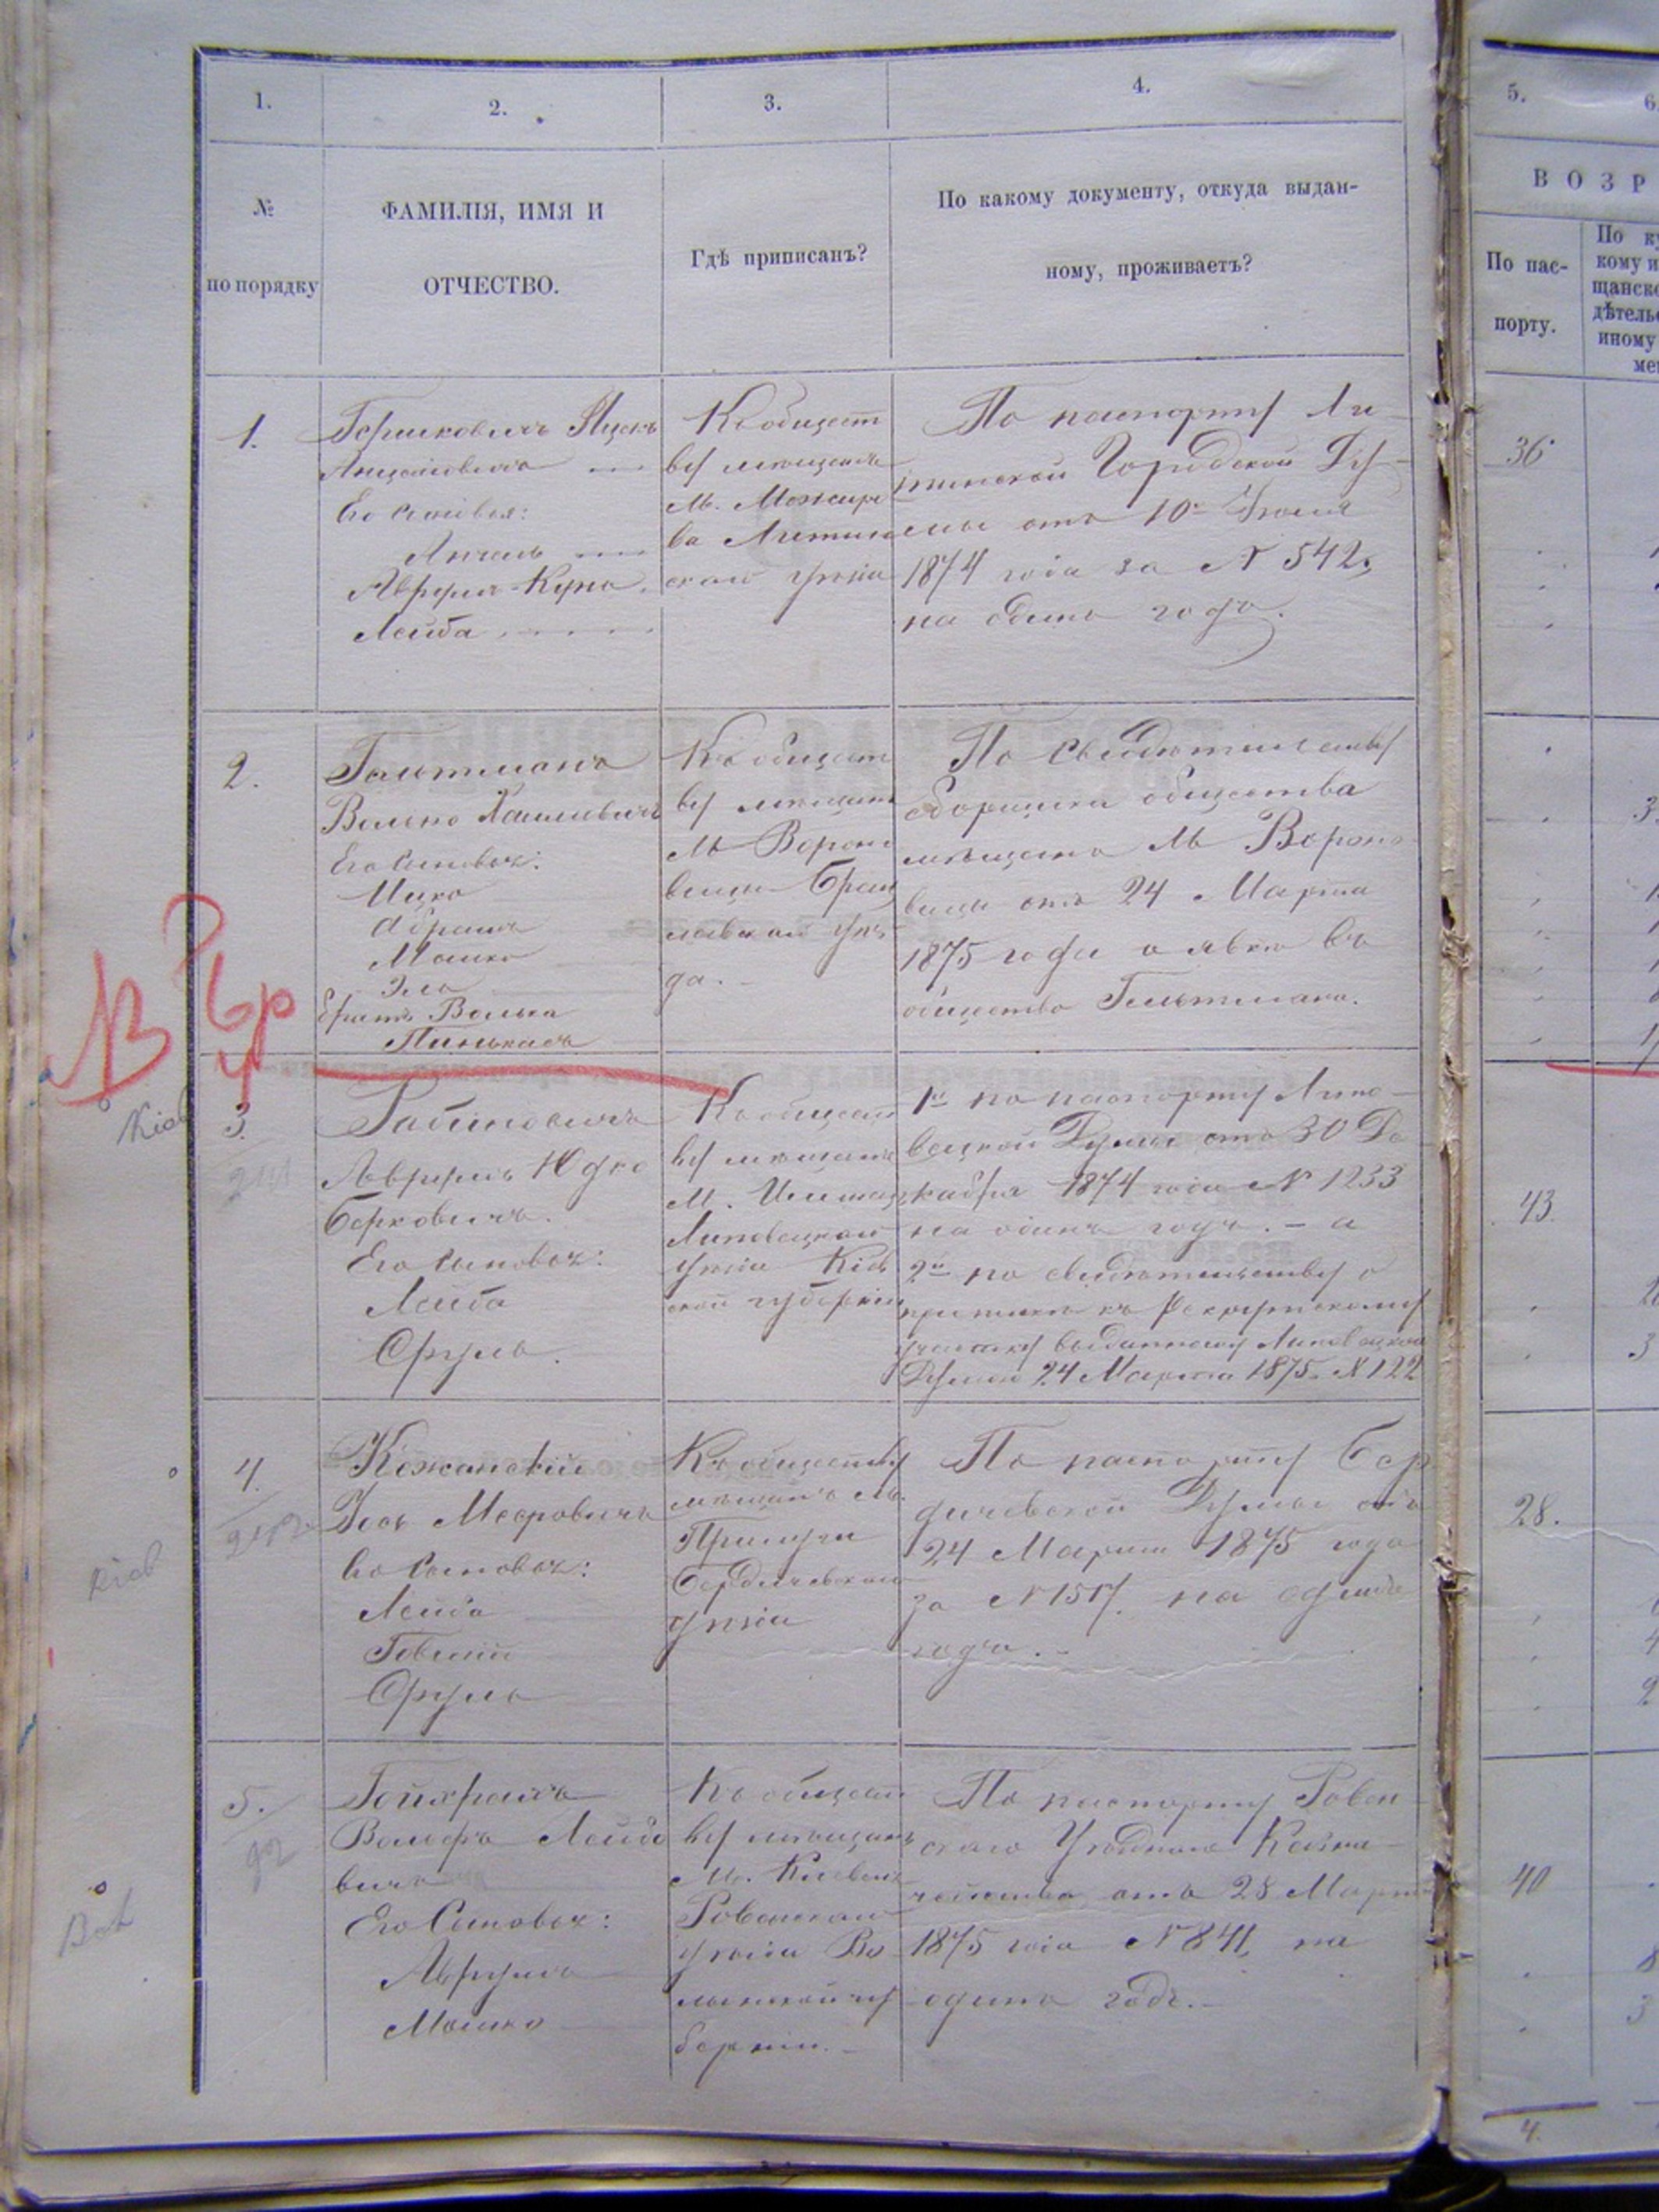 1.
2.
3.
4.
5.
6
№
по порядку
ФАМИЛІЯ, ИМЯ И
ОТЧЕСТВО.
Гдѣ приписанъ?
По какому документу, откуда выдан-
ному, проживаетъ?
ВОЗР
По пас-
порту.
По ку
кому и
щанско
дѣтельс
иному
мен
1.
Гершковичъ Ицекъ
Его сыновья:
Анчель
Аврумъ-Куна
Лейба
Къ общест
ву мѣщанъ
м. Межиро
ва Летин
скаго уѣзда
По паспорту Ли-
тинской Городской Ду-
мы отъ 10го Іюля
1874 года за № 542,
на одинъ годъ.
36
2.
Гольтманъ
Волько Хаимовичъ
Его сыновья:
Ицко
Абрамъ
Мошко
Эля
братъ Волька
Пинькасъ
Къ общест
ву мѣщанъ
м. Вороно
вицы Брац
лавскаго уѣз
да.
По свидѣтельству
сборщика общества
мѣщанъ м. Вороно-
вицы отъ 24 Марта
1875 года о явкѣ въ
общество Гельтмана.
3.
Рабиновичъ
Аврумъ Юдко
Берковичъ.
Его сыновья:
Лейба
Сруль.
Къ общест
ву мѣщанъ
м.
Липовецкаго
уѣзда Кіев
ской губерніи
1е по паспорту Липо-
вецкой Думы отъ 30 Де
кабря 1874 года № 1233
на одинъ годъ. - а
2е по свидѣтельству о
припискѣ къ Рекрутскому
участку выданному Липовецкой
Думой 24 Марта 1875. № 122
43
4.
Кожанскій
Іось Мееровичъ
Его сыновья:
Лейба
Сруль
Къ обществу
мѣщанъ м.
Прилуки
Бердичевскаго
уѣзда
По паспорту Бер
дичевской Думы отъ
24 Марта 1875 года
на одинъ
годъ.-
28.
5.
Вольфъ Лейбо
вичъ
Его Сыновья:
Аврумъ
Мошко
Къ общест
ву мѣщанъ
м. Клевань
Ровенскаго
уѣзда Во
лынской гу
берніи.-
По паспорту Ровен
скаго Уѣзднаго Казна-
чейства отъ 28 Марта
1875 года № 841, на
одинъ годъ.-
40
Кіев
Кіев
4.